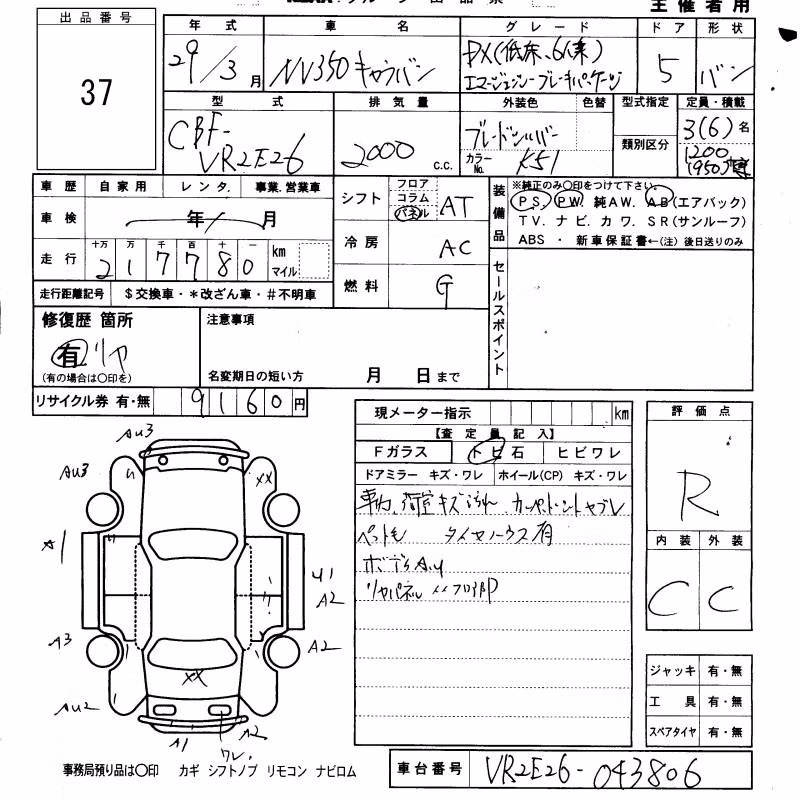 主催者用
出品番号
37
年式 車名 グレード ドア 形状
29/3月 NV350キャラバン DX(低床、6人乗) 5 バン
エマージェンシーブレーキパッケージ
型式 排気量 外装色 色替 型式指定 定員・積載
CBF-VR2E26 2000 c.c. ブレードシルバー 3(6)名
カラーNo. K51 類別区分 1200
車歴 自家用 レンタ. 事業.営業車
車検 年 月
走行 十万 万 千 百 十 一 km マイル
217780
走行距離記号 $交換車・*改ざん車・#不明車
シフト フロア コラム パネル AT
冷房 AC
燃料 G
装備品
※純正のみ○印をつけて下さい。
PS. PW. 純AW. AB(エアバック)
TV. ナビ. カワ. SR(サンルーフ)
ABS ・ 新車保証書←(注) 後日送りのみ
セールスポイント
修復歴 箇所 注意事項
有 リヤ
(有の場合は○印を) 名変期日の短い方 月 日まで
リサイクル券 有・無 9160円
現メーター指示 km
【査定員記入】
Fガラス トビ石 ヒビワレ
ドアミラー キズ・ワレ ホイール(CP) キズ・ワレ
タイヤハウス有
評価点
R
内装 外装
C C
AU3
AU3
XX
A1
U1
A2
A3
A2
XX
AU2
A1
A2
ワレ
ジャッキ 有・無
工具 有・無
スペアタイヤ 有・無
事務局預り品は○印 カギ シフトノブ リモコン ナビロム
車台番号 VR2E26-043806